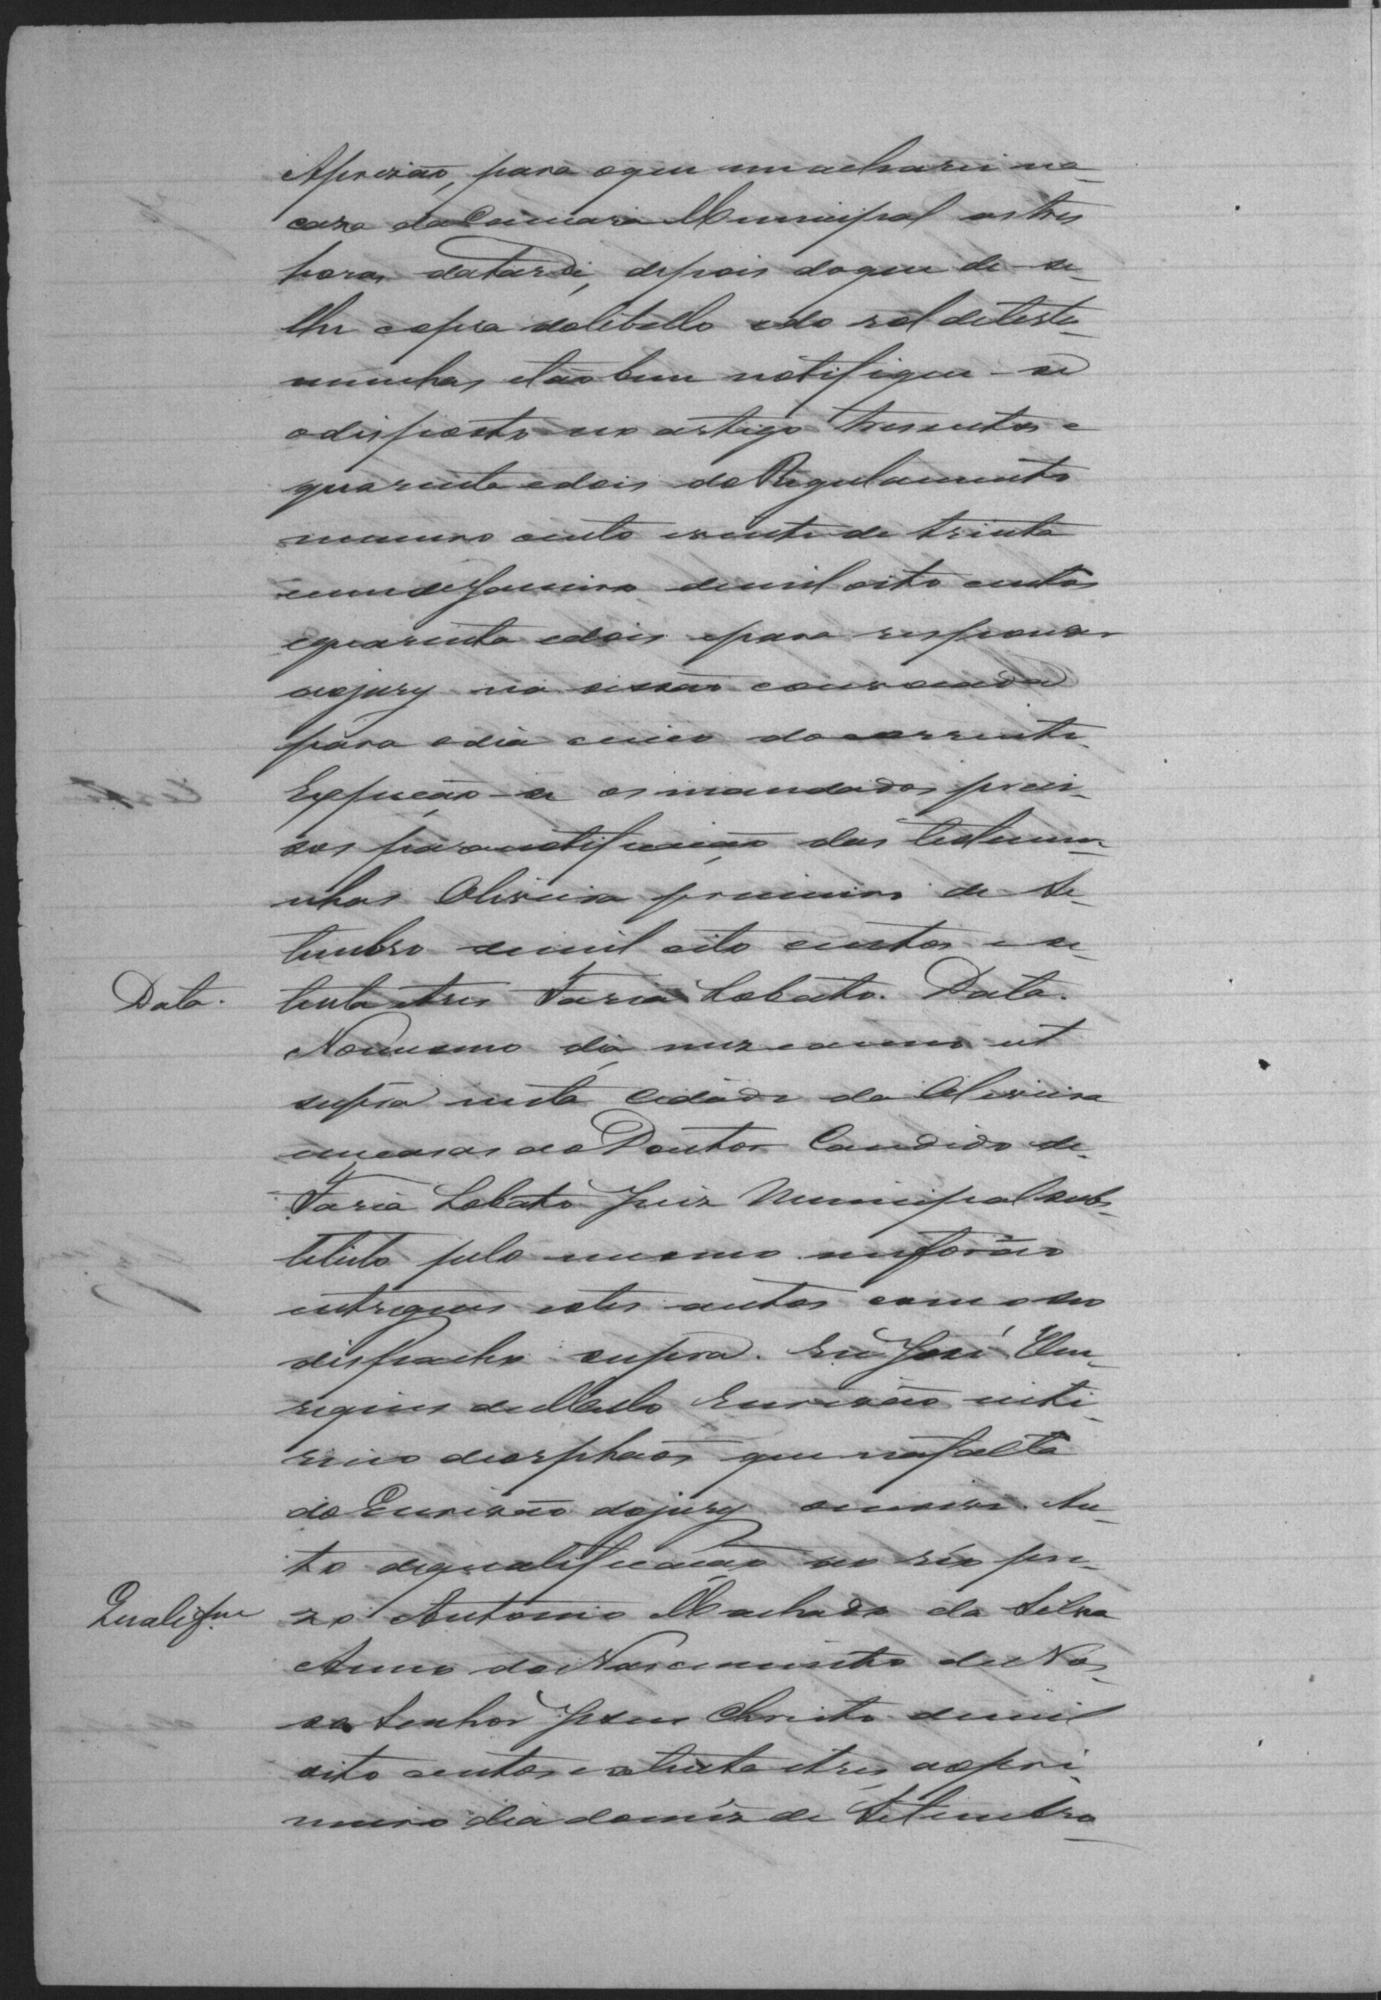 Aprizão, para oque me acharei na
caza da Camara Municipal as tres
horas da tarde, depois do que de-se
lhe copia do libello e do rol de teste-
munhas e tão bem notifique-se
o disposto no artigo tresentos e
quarenta e dois do Regulamento
numero cento e vinte de trinta
e um de Janeiro de mil oito centos
e quarenta e dois e para responder
ao jury na sessão convocada
para o dia cinco do corrente.
Expeção-se os mandados preci-
zos para notificação das testemu-
nhas Oliveira primeiro de Se-
tembro de mil oito centos e se-
Data. tenta e tres Faria Lobato. Data.
No mesmo dia mez e anno ut
supra nesta Cidade da Oliveira
em casas do Doutor Candido de
Faria Lobato Juiz Municipal subs-
tituto pelo mesmo me forão
entregues estes autos com o seu
despacho supra. Eu José Hen-
riques de Mello Escrivão inte-
rino de orphãos que na falta
do Escrivão do jury escrevi. Au-
to de qualificação ao réo pre-
Qualifm. zo Antonio Machado da Silva
Anno do Nascimento de Nos-
so Senhor Jesus Christo de mil
oito centos e setenta e tres, ao pri-
meiro dia do mez de Setembro